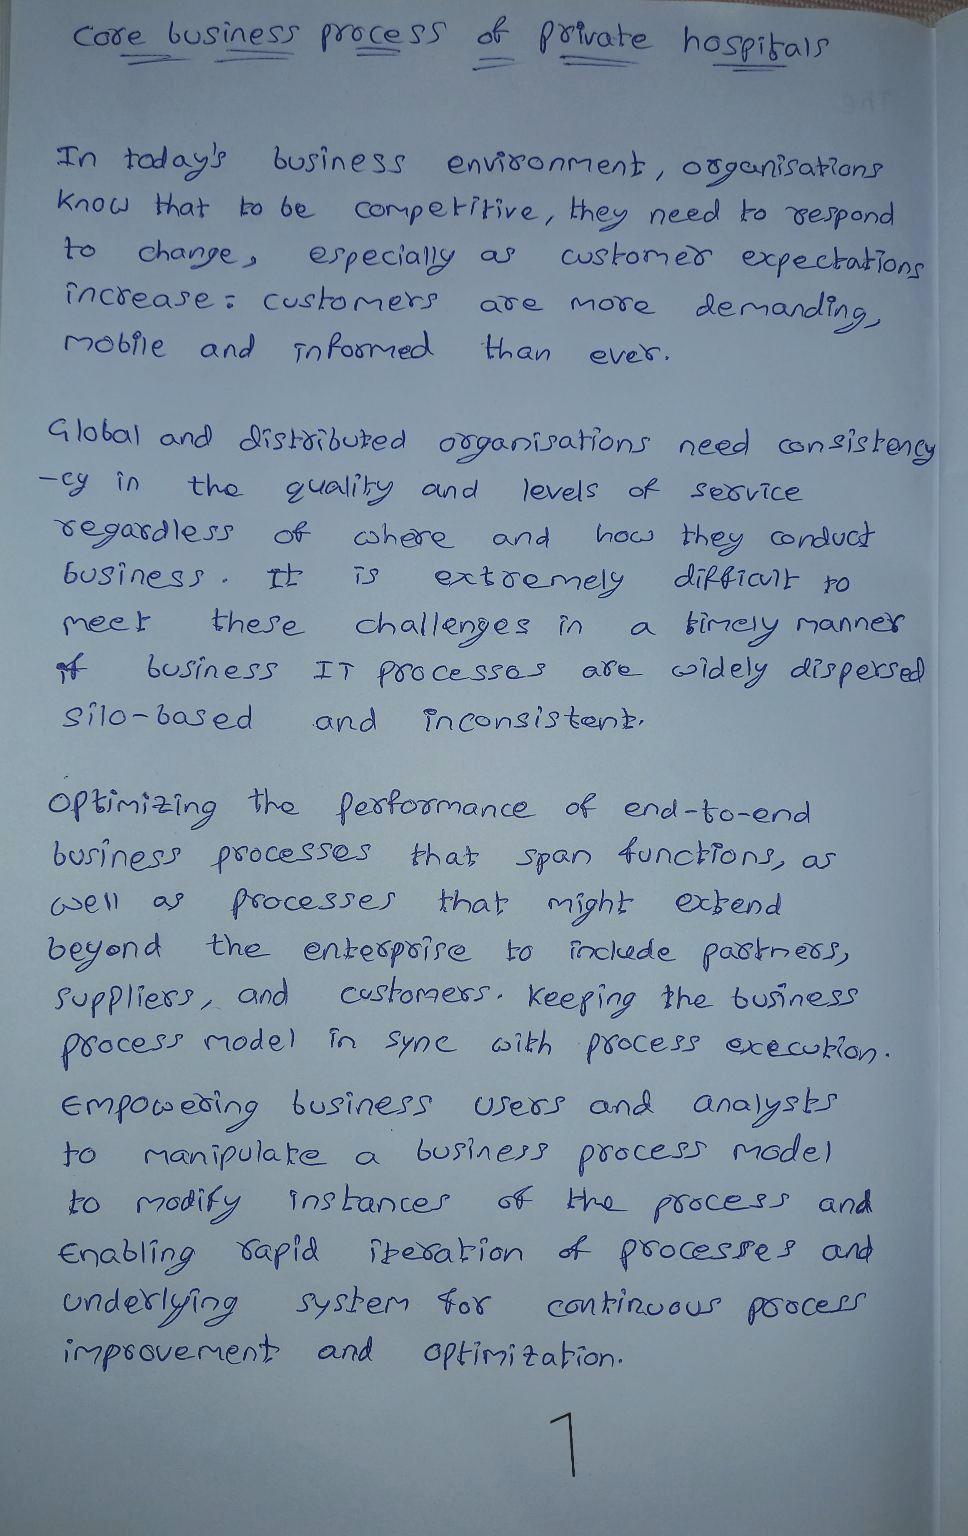 core business process of private hospitals
In today's business environment, organisations
know that to be competitive, they need to respond
to change, especially as customer expectations
increase: customers are more demanding,
mobile and informed than ever.
Global and distributed organisations need consistency
-cy in the quality and levels of service
regardless of where and how they conduct
business. It is extremely difficult to
meet these challenges in a timely manner
if business IT processes are widely dispersed
silo-based and inconsistent.
optimizing the performance of end-to-end
business processes that span functions, as
well as processes that might extend
beyond the enterprise to include partners,
suppliers, and customers. keeping the business
process model in sync with process execution.
Empowering business users and analysts
to manipulate a business process model
to modify instances of the process and
Enabling rapid iteration of processes and
underlying system for continuous process
improvement and optimization.
1